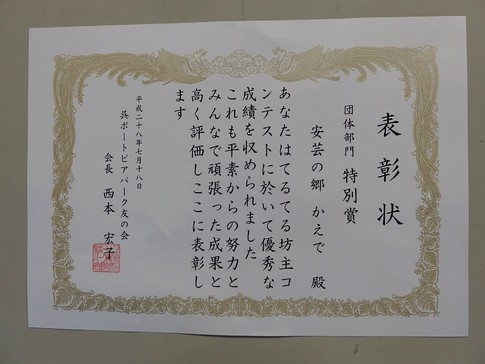 表彰状
団体部門 特別賞
安芸の郷 かえで 殿
あなたはてるてる坊主コ
ンテストに於いて優秀な
成績を収められました
これも平素からの努力と
みんなで頑張った成果と
高く評価しここに表彰し
ます
平成二十八年七月十八日
呉ポートピアパーク友の会
会長 西本 宏子